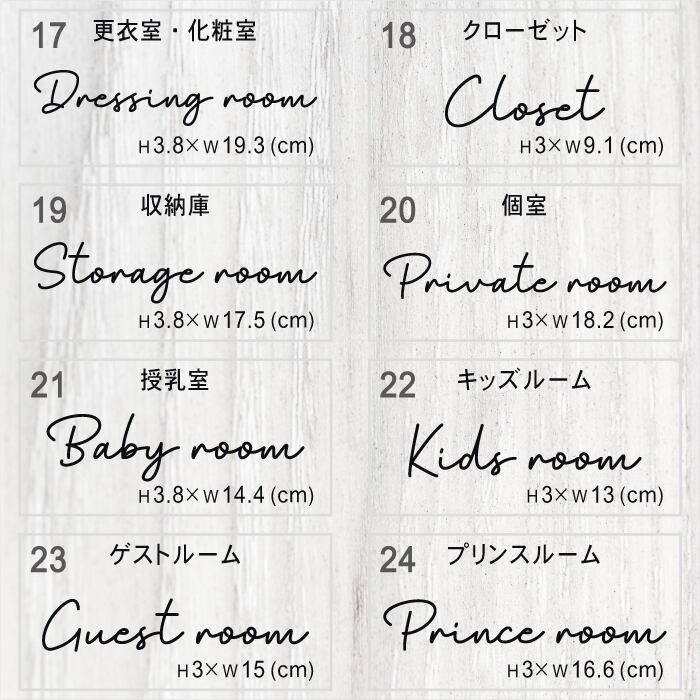 17 更衣室・化粧室
Dressing room
H3.8×W19.3(cm)
18 クローゼット
Closet
H3×W9.1(cm)
19 収納庫
Storage room
H3.8×W17.5(cm)
20 個室
Private room
H3×W18.2(cm)
21 授乳室
Baby room
H3.8×W14.4(cm)
22 キッズルーム
Kids room
H3×W13(cm)
23 ゲストルーム
Guest room
H3×W15(cm)
24 プリンスルーム
Prince room
H3×W16.6(cm)